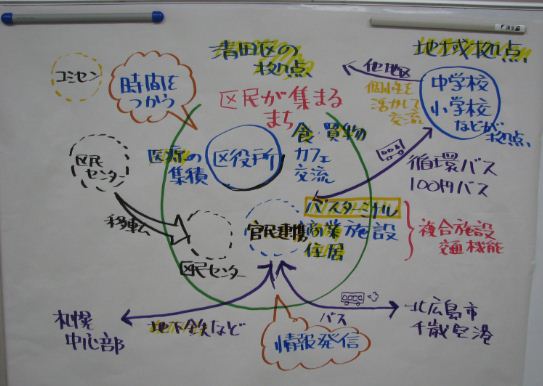 清田区の
拠点
地域拠点
コミセン
時間を
つかう
区民が集まる
まち
他地区
個性を
活かして
交流
中学校
小学校
などが拠点
医療の
集積
区役所
食・買物
カフェ
交流
循環バス
100円バス
区民
センター
移転
区民センター
官民連携
バスターミナル
商業施設
住居
複合施設
交通機能
札幌
中心部
地下鉄など
情報発信
バス
北広島市
千歳空港